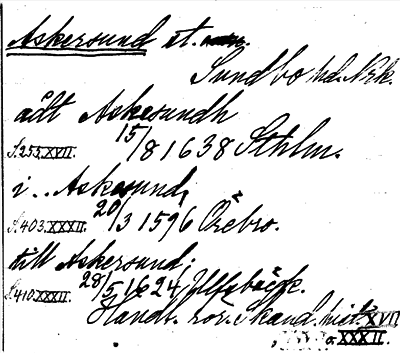 Askersund st.
Sundbo hd. Nrk.
ådt Askesundh
S. 255. XVII. 15/8 1638 Sthlm.
i .. Askesund,
S. 403. XXXII. 20/3 1596 Örebro.
till Askersund;
S. 410. XXXII. 28/5 1624, Ulfsbäck.
Handl. rör. Skand. hist. XVII
o. XXXII.